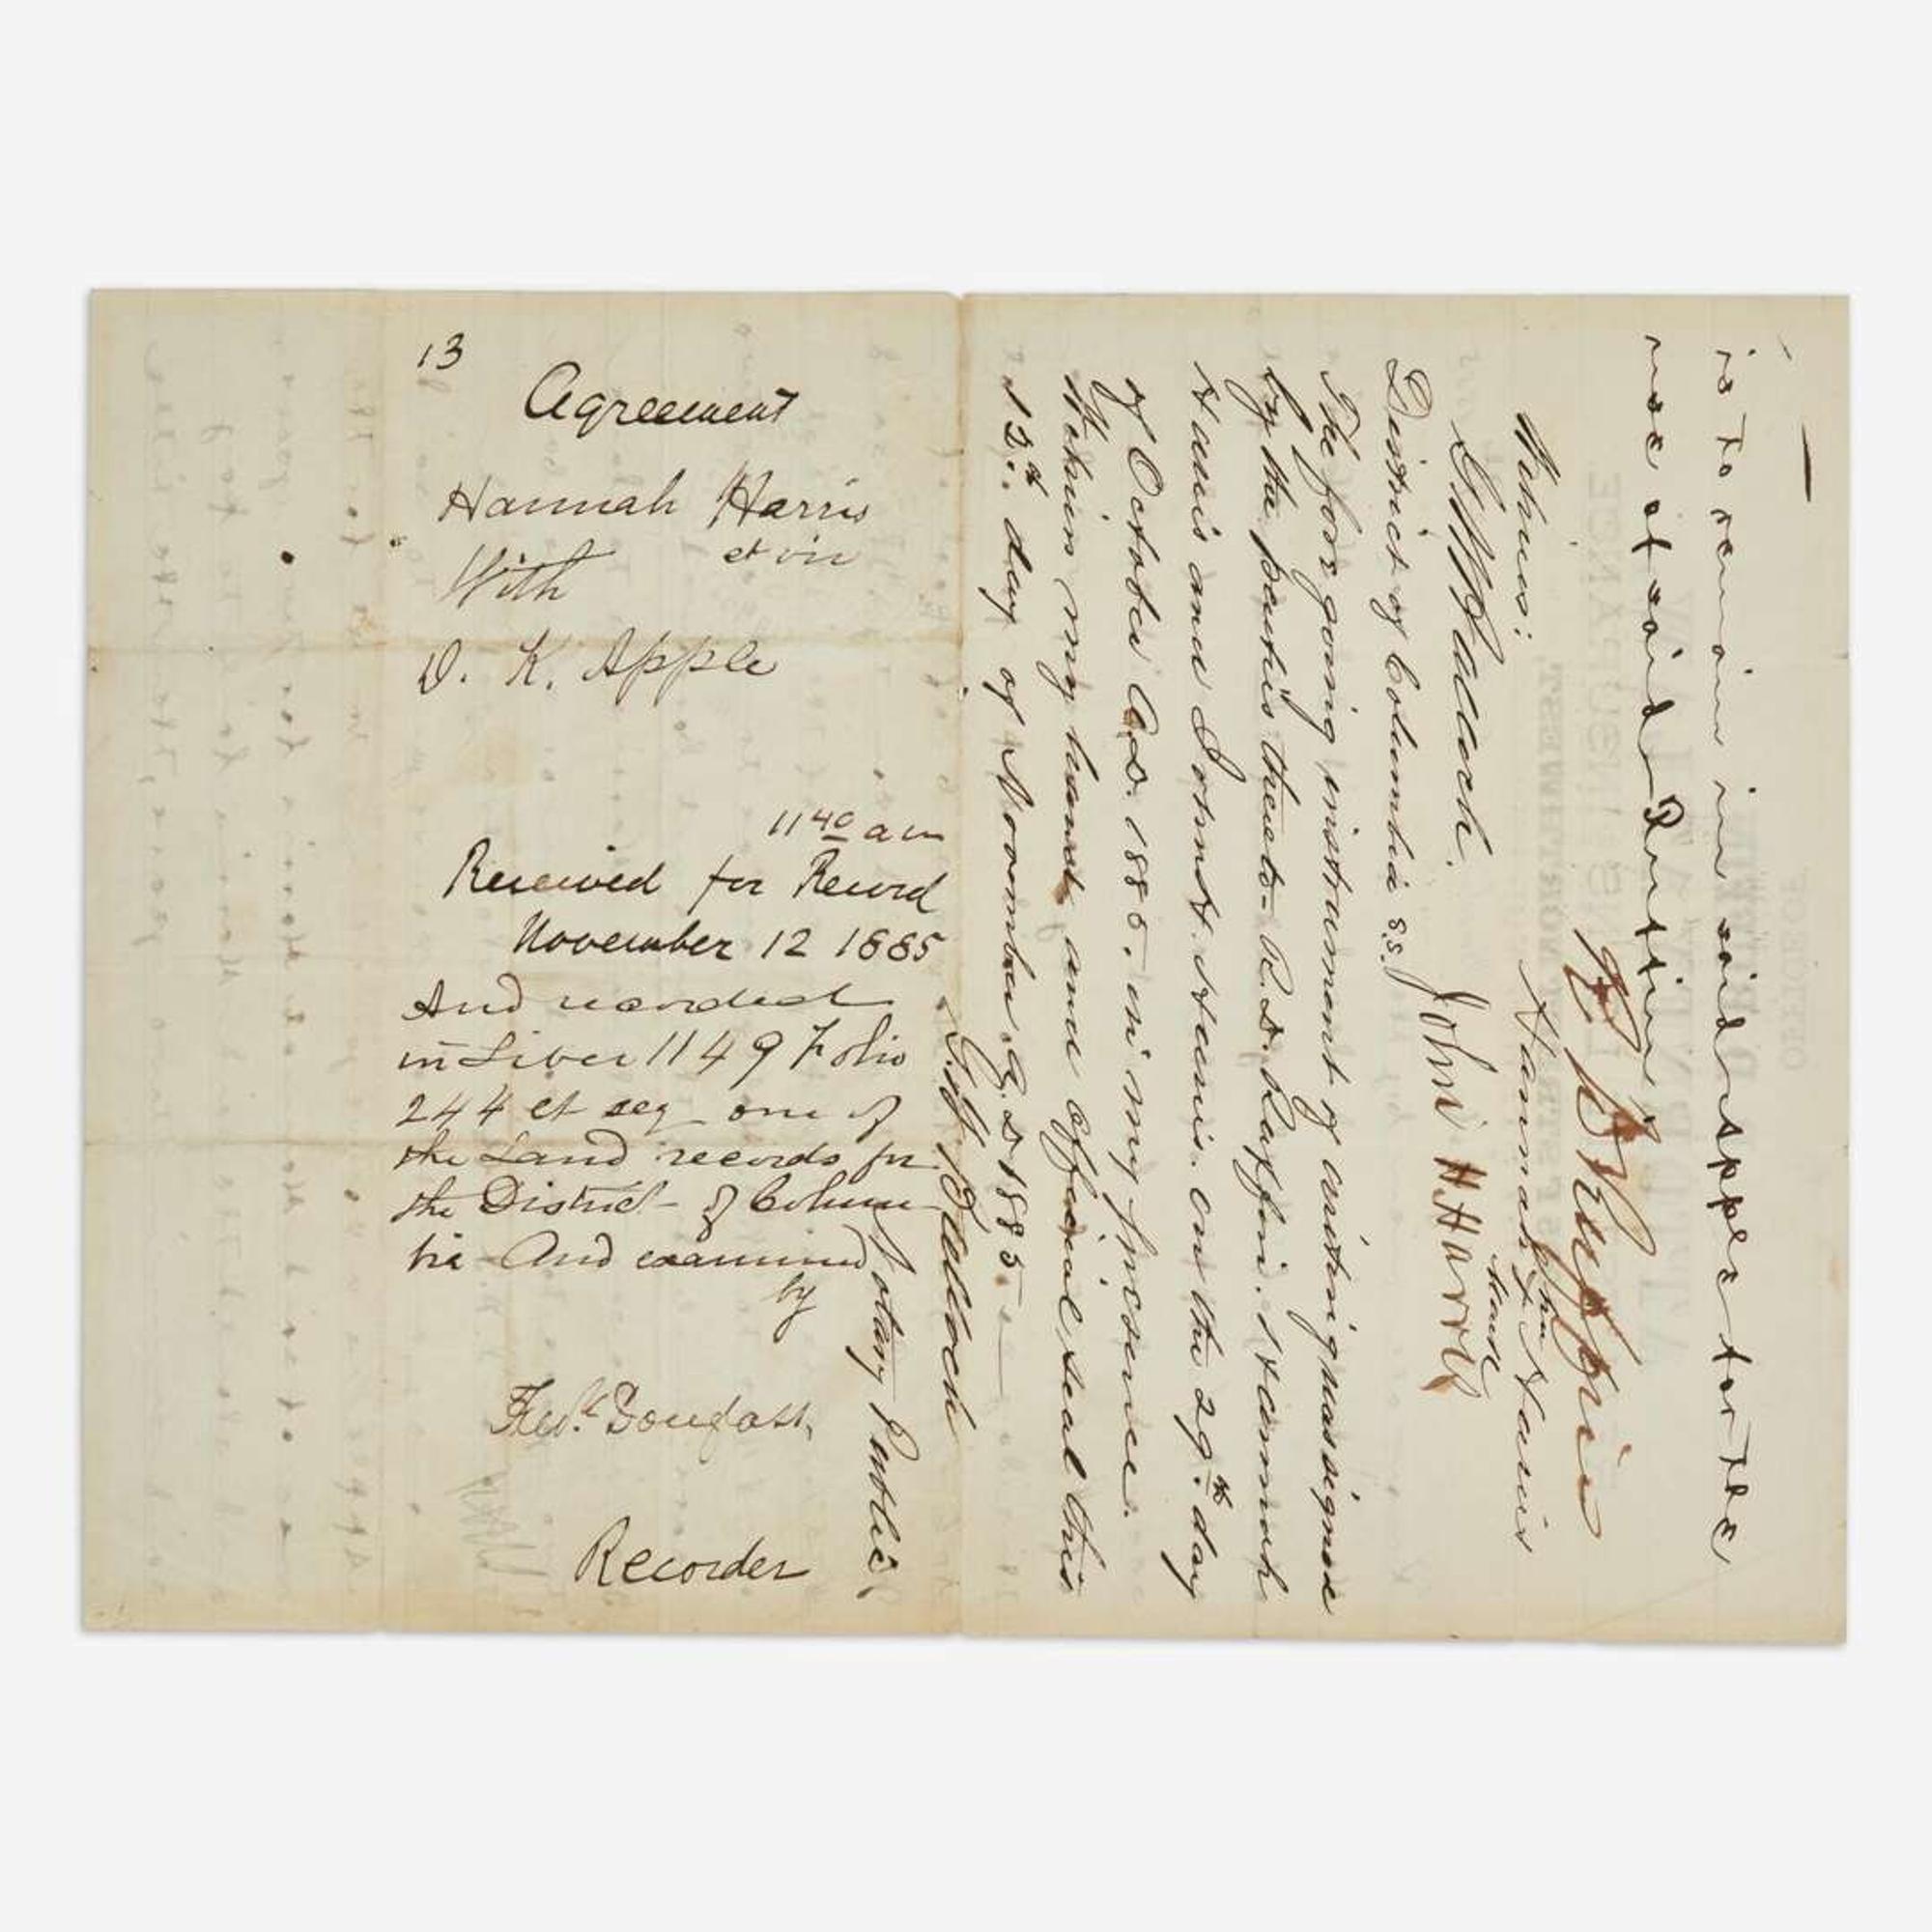 13
Agreement
Hannah Harris
et vir
With
D. K. Apple
11 40 am
Received for Record
November 12 1885
And recorded
in Liber 1149 Folio
244 et seq one of
the Land records for
the District of Colum
bia And examined
by
Fredk Douglass,
Recorder
is to remain in said Apple for the
use of said Ruffin
R. D. Ruffin
Witness:
Hannah her x mark Harris
John H Harris
District of Columbia s.s.
The fore going instrument of writing was signed
by the parties thereto - R. D. Ruffin. Hannah
Harris and John H. Harris. on the 29th. day
of October A.D. 1885. in my presence.
Witness my hand and official seal this
12th. day of November A.D 1885
Notary Public